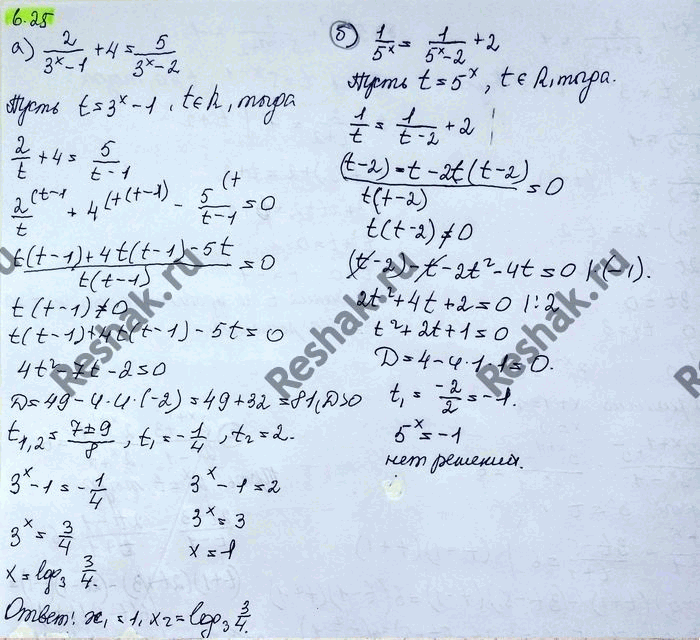 6.25
а) 2/(3ˣ-1) + 4 = 5/(3ˣ-2)
Пусть t = 3ˣ-1, t∈R, тогда
2/t + 4 = 5/(t-1)
2/t ⁽ᵗ⁻¹ + 4 ⁽ᵗ⁽ᵗ⁻¹⁾ - 5/(t-1) ⁽ᵗ = 0
(t(t-1)+4t(t-1)-5t)/(t(t-1)) = 0
t(t-1)≠0
t(t-1)+4t(t-1)-5t=0
4t²-7t-2=0
D=49-4·4·(-2)=49+32=81, D>0
t₁,₂ = (7±9)/8, t₁ = -1/4, t₂ = 2.
3ˣ-1 = -1/4 3ˣ-1=2
3ˣ = 3/4 3ˣ=3
x = log₃ 3/4. x=1
Ответ: x₁=1, x₂=log₃ 3/4.
б) 1/5ˣ = 1/(5ˣ-2) + 2
Пусть t=5ˣ, t∈R, тогда.
1/t = 1/(t-2) + 2
((t-2)=t-2t(t-2))/(t(t-2)) = 0
t(t-2)≠0
(t-2)-t-2t²-4t=0 |·(-1).
2t²+4t+2=0 |:2
t²+2t+1=0
D=4-4·1·1=0.
t₁ = -2/2 = -1.
5ˣ=-1
нет решений.
Reshak.ru
Reshak.ru
Reshak.ru